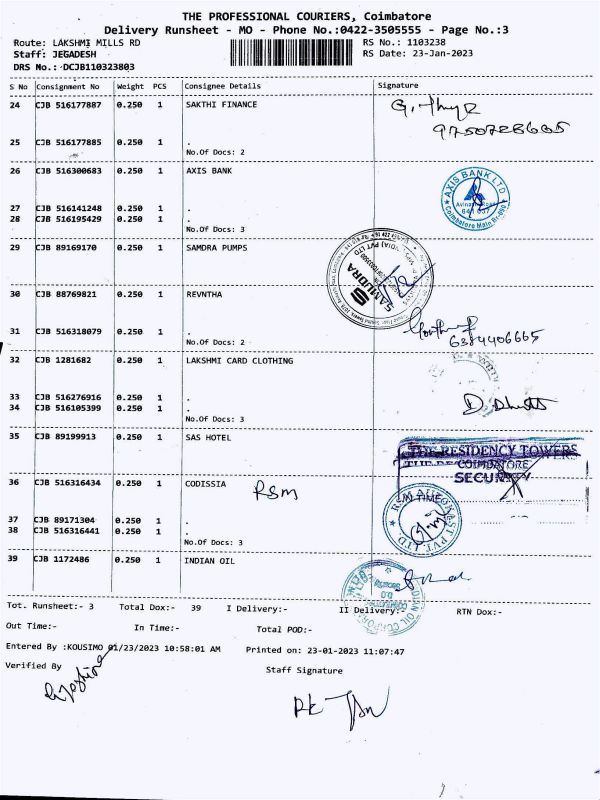 THE PROFESSIONAL COURIERS, Coimbatore
Delivery Runsheet - MO - Phone No.:0422-3505555 - Page No.:3
Route: LAKSHMI MILLS RD RS No.: 1103238
Staff: JEGADESH RS Date: 23-Jan-2023
DRS No.: DCJB110323803
S No Consignment No Weight PCS Consignee Details Signature
24 CJB 516177887 0.250 1 SAKTHI FINANCE
25 CJB 516177885 0.250 1 .
No.Of Docs: 2
26 CJB 516300683 0.250 1 AXIS BANK
AXIS BANK LTD
27 CJB 516141248 0.250 1 .
28 CJB 516195429 0.250 1 .
No.Of Docs: 3
29 CJB 89169170 0.250 1 SAMDRA PUMPS
SAMUDRA
30 CJB 88769821 0.250 1 REVNTHA
6384406665
31 CJB 516318079 0.250 1 .
No.Of Docs: 2
32 CJB 1281682 0.250 1 LAKSHMI CARD CLOTHING
33 CJB 516276916 0.250 1 .
34 CJB 516105399 0.250 1 .
No.Of Docs: 3
35 CJB 89199913 0.250 1 SAS HOTEL
THE RESIDENCY TOWERS
COIMBATORE
SECURITY
36 CJB 516316434 0.250 1 CODISSIA RSM
37 CJB 89171304 0.250 1 .
38 CJB 516316441 0.250 1 .
No.Of Docs: 3
39 CJB 1172486 0.250 1 INDIAN OIL
Tot. Runsheet:- 3 Total Dox:- 39 I Delivery:- II Delivery:- RTN Dox:-
Out Time:- In Time:- Total POD:-
Entered By :KOUSIMO 01/23/2023 10:58:01 AM Printed on: 23-01-2023 11:07:47
Verified By Staff Signature